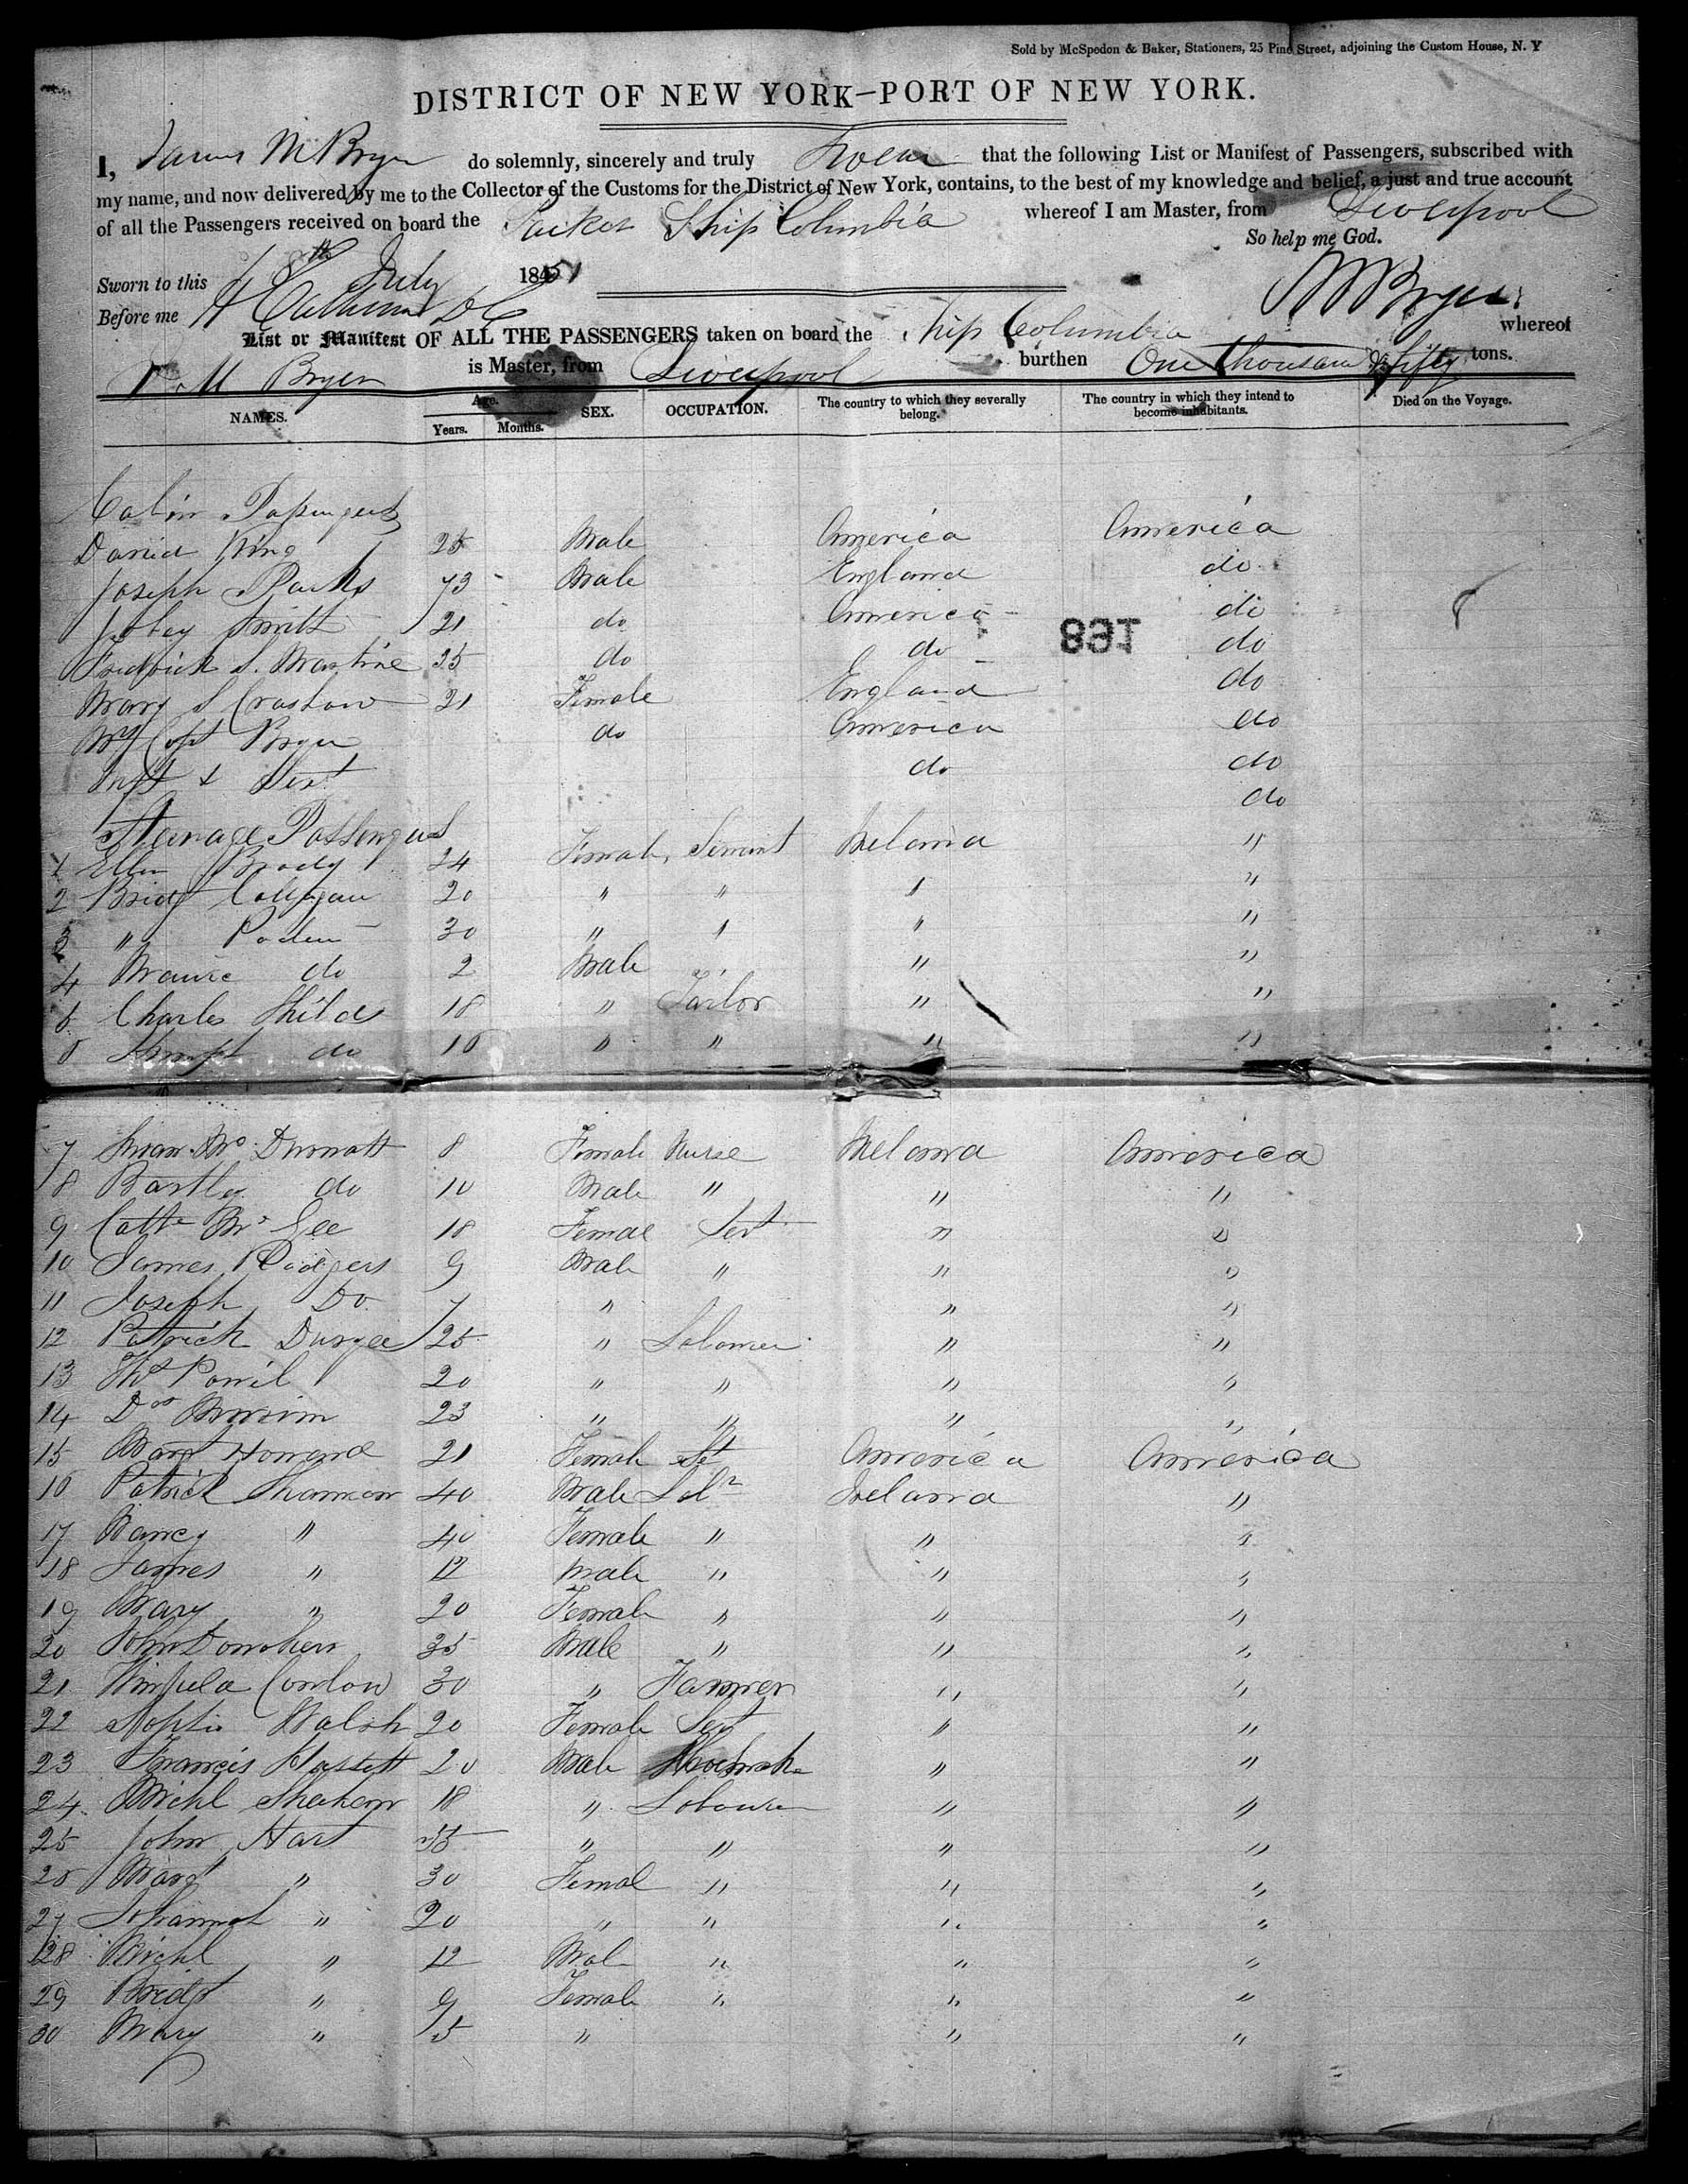 Sold by McSpedon & Baker, Stationers, 25 Pine Street, adjoining the Custom House, N. Y
DISTRICT OF NEW YORK—PORT OF NEW YORK.
I, James M Bryer do solemnly, sincerely and truly swear that the following List or Manifest of Passengers, subscribed with
my name, and now delivered by me to the Collector of the Customs for the District of New York, contains, to the best of my knowledge and belief, a just and true account
of all the Passengers received on board the Packet Ship Columbia whereof I am Master, from Liverpool
So help me God.
Sworn to this 8th July 1851
Before me
M Bryer
List or Manifest OF ALL THE PASSENGERS taken on board the Ship Columbia whereof
M Bryer is Master, from Liverpool burthen One thousand & fifty tons.
NAMES. Age. Years. Months. SEX. OCCUPATION. The country to which they severally belong. The country in which they intend to become inhabitants. Died on the Voyage.
Cabin Passengers
Daniel King 25 Male America America
Joseph Parks 73 Male England do
Smith 21 do America do
891
Fredrick S. 25 do do do
Mary S Crastow 21 Female England do
Mrs Capt Bryer do America do
Inft & Servt do do
do
Steerage Passengers
1 Ellen Brady 24 Female Servant Ireland "
2 Bridt 20 " " " "
3 " 30 " " " "
4 do 2 Male " " "
5 Charles Shilds 18 " Tailor " "
6 do 16 " " " "
7 Mc Dermott 8 Female Nurse Ireland America
8 Bartley do 10 Male " " "
9 Cathe Mc Gee 18 Female Servt " "
10 James Rodgers 9 Male " " "
11 Joseph Do 7 " " "
12 Patrick 25 " Labourer " "
13 Thos 20 " " " "
14 Do 23 " " " "
15 Margt Howard 21 Female St America America
16 Patrick Shannon 40 Male Labr Ireland "
17 Nancy " 40 Female " " "
18 James " 12 Male " " "
19 Mary " 20 Female " " "
20 John 35 Male " " "
21 Conlon 30 " Farmer " "
22 Walsh 20 Female Servt " "
23 Francis Hassett 20 Male " "
24 Michl 18 " Labourer " "
25 John Hart 35 " " " "
26 Margt " 30 Femal " " "
27 Johannah " 20 " " " "
28 Michl " 12 Mal " " "
29 Bridgt " 9 Female " " "
30 Mary " 5 " " "